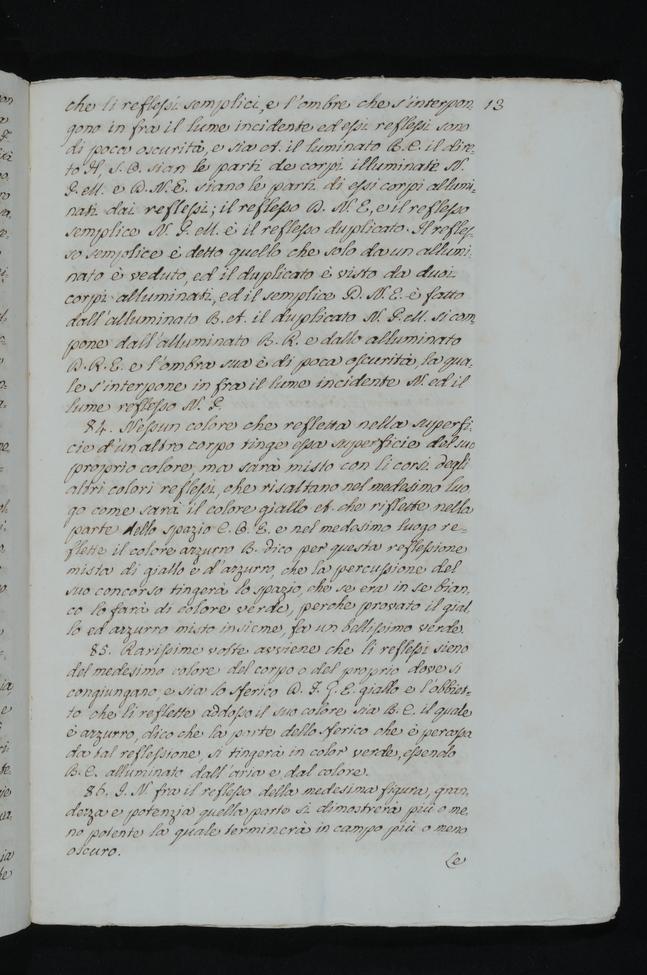 che li reflessi semplici, e l'ombre che s'interpon 13
gono in fra il lume incidente ed essi reflessi sono
di poca oscurità, e sia et. il luminato B. C. il diret
to A, S. B. sian le parti de corpi illuminate N.
G. M. e D. N. E. siano le parti di essi corpi allumi-
nati dai reflessi; il reflesso D. N. E, e il reflesso
semplice N. G. M. è il reflesso duplicato. Il refles-
so semplice è detto quello che solo da un allumi-
nato è veduto, ed il duplicato è visto da duoi
corpi alluminati, ed il semplice D. N. E. è fatto
dall'alluminato B. et. il duplicato N. G. M. si com
pone dall'alluminato B. R. e dallo alluminato
D. R. E. e l'ombra sua è di poca oscurità, la qua-
le s'interpone in fra il lume incidente N ed il
lume reflesso N. G.
84. Nessun colore che refletta nella superfi-
cie d'un altro corpo tinge essa superficie del suo
proprio colore, ma sarà misto con li corsi degli
altri colori reflessi, che risaltano nel medesimo luo
go come sarà il colore giallo et. che riflette nella
parte dello spazio C. B. E. e nel medesimo luogo re=
flette il colore azzurro B. dico per questa reflessione
mista di giallo e d'azzurro, che la percussione del
suo concorso tingerà lo spazio, che se era in se bian,
co lo farà di colore verde, perche provato il gial
lo ed azzurro misto insieme, fa un bellissimo verde.
85. Rarissime volte avviene che li reflessi sieno
del medesimo colore del corpo o del proprio dove si
congiungano, e sia lo sferico D. F. G. E. giallo e l'obbiet-
to che li reflette addosso il suo colore sia B. C. il quale
è azzurro, dico che la parte dello sferico che è percossa
da tal reflessione, si tingerà in color verde, essendo
B. C. alluminato dall'aria e, dal colore.
86. I. N fra il reflesso della medesima figura, gran
dezza e potenzia quella parte si dimostrerà più o me,
no potente la quale terminerà in campo più o meno
oscuro.
Le